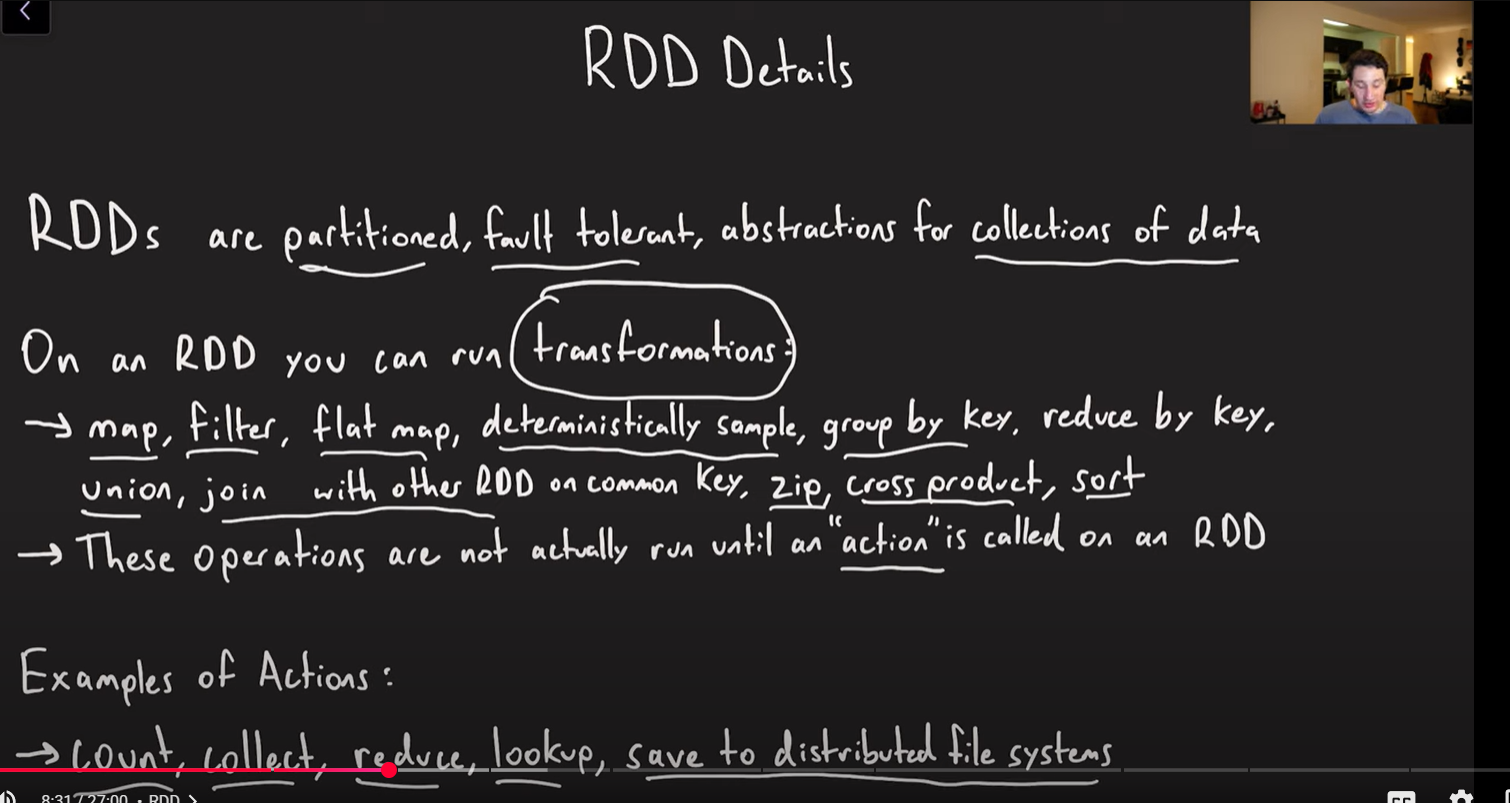 RDD Details
RDDs are partitioned, fault tolerant, abstractions for collections of data
On an RDD you can run transformations:
→ map, filter, flat map, deterministically sample, group by key, reduce by key,
union, join with other RDD on common key, zip, cross product, sort
→ These operations are not actually run until an "action" is called on an RDD
Examples of Actions:
→ count, collect, reduce, lookup, save to distributed file systems
8:31 / 27:00 • RDD >